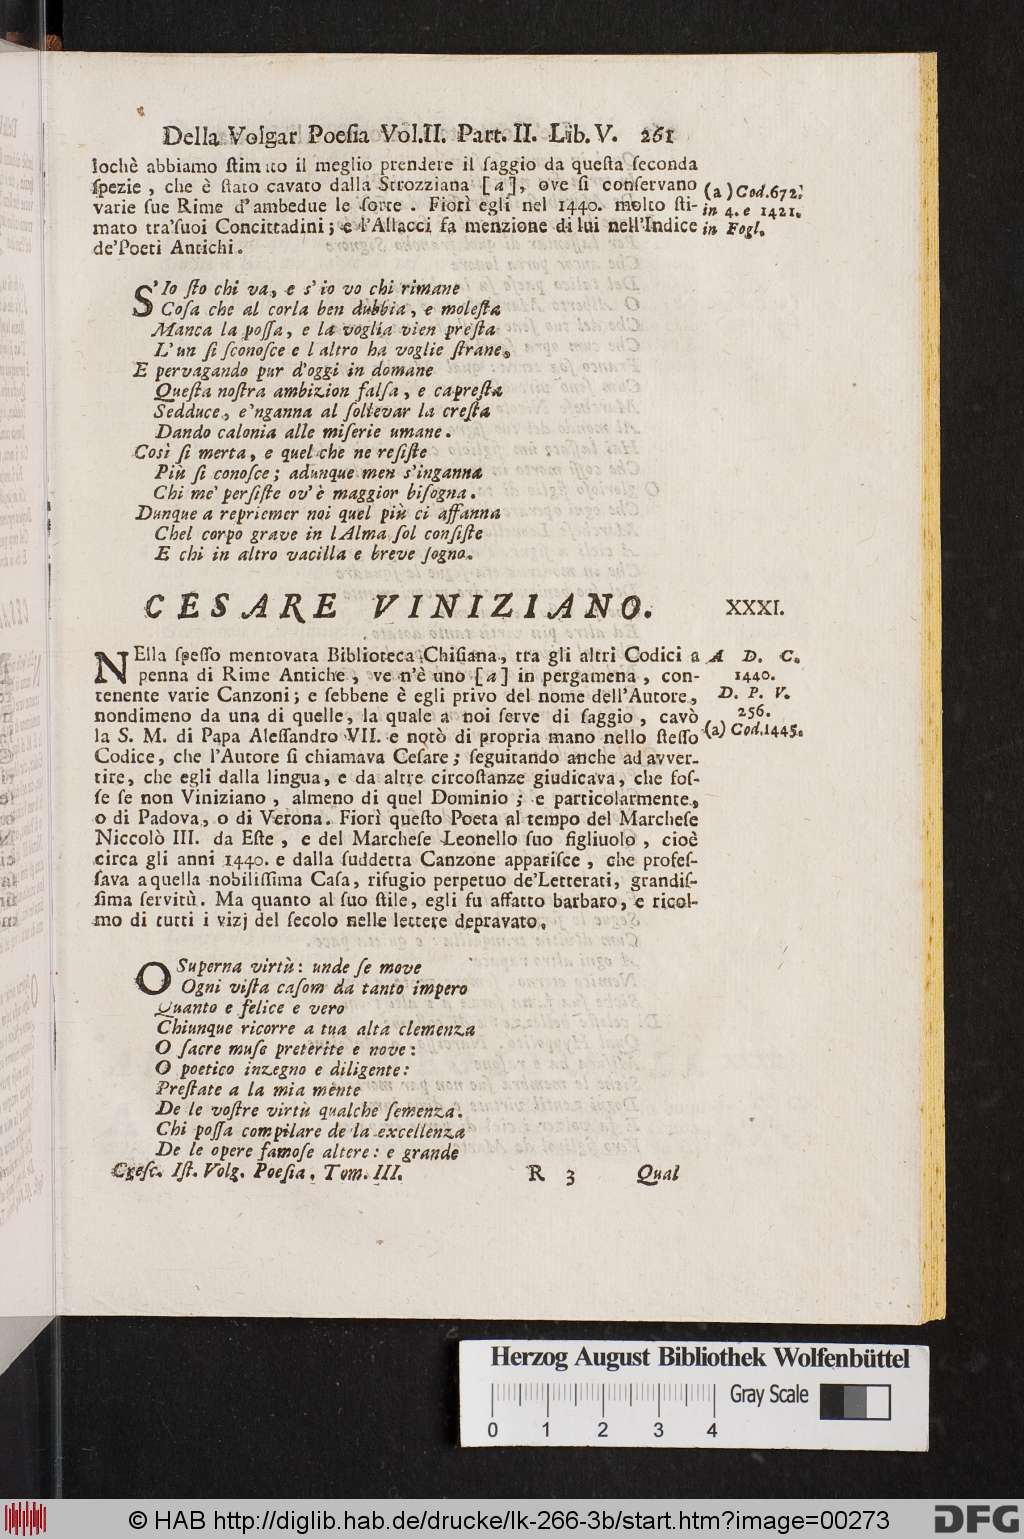 Della Volgar Poeſia Vol.II. Part. II. Lib. V. 261
lochè abbiamo ſtimato il meglio prendere il ſaggio da queſta ſeconda
ſpezie , che è ſtato cavato dalla Strozziana [a], ove ſi conſervano
varie ſue Rime d'ambedue le ſorte . Fiorì egli nel 1440. molto ſti-
mato tra'ſuoi Concittadini; e l'Allacci fa menzione di lui nell'Indice
de'Poeti Antichi.
(a) Cod.672.
in 4. e 1421.
in Fogl.
S'Io ſto chi va, e s'io vo chi rimane
Coſa che al corla ben dubbia, e moleſta
Manca la poſſa, e la voglia vien preſta
L'un ſi ſconoſce e l altro ha voglie ſtrane,
E pervagando pur d'oggi in domane
Queſta noſtra ambizion falſa, e capreſta
Sedduce, e'nganna al ſollevar la creſta
Dando calonia alle miſerie umane.
Così ſi merta, e quel che ne reſiſte
Più ſi conoſce; adunque men s'inganna
Chi me' perſiſte ov'è maggior biſogna.
Dunque a repriemer noi quel più ci affanna
Chel corpo grave in lAlma ſol conſiſte
E chi in altro vacilla e breve ſogna.
CESARE VINIZIANO. XXXI.
NElla ſpeſſo mentovata Biblioteca Chiſiana, tra gli altri Codici a
penna di Rime Antiche , ve n'è uno [a] in pergamena , con-
tenente varie Canzoni; e ſebbene è egli privo del nome dell'Autore,
nondimeno da una di quelle, la quale a noi ſerve di ſaggio , cavò
la S. M. di Papa Aleſſandro VII. e notò di propria mano nello ſteſſo
Codice, che l'Autore ſi chiamava Ceſare; ſeguitando anche ad avver-
tire, che egli dalla lingua, e da altre circoſtanze giudicava, che foſ-
ſe ſe non Viniziano , almeno di quel Dominio ; e particolarmente,
o di Padova, o di Verona. Fiorì queſto Poeta al tempo del Marcheſe
Niccolò III. da Eſte , e del Marcheſe Leonello ſuo figliuolo , cioè
circa gli anni 1440. e dalla ſuddetta Canzone appariſce , che profeſ-
ſava a quella nobiliſſima Caſa, rifugio perpetuo de'Letterati, grandiſ-
ſima ſervitù. Ma quanto al ſuo ſtile, egli fu affatto barbaro, e ricol-
mo di tutti i vizj del ſecolo nelle lettere depravato.
A D. C.
1440.
D. P. V.
256.
(a) Cod.1445.
O Superna virtù: unde ſe move
Ogni viſta caſom da tanto impero
Quanto e felice e vero
Chiunque ricorre a tua alta clemenza
O ſacre muſe preterite e nove:
O poetico inzegno e diligente:
Preſtate a la mia mente
De le voſtre virtù qualche ſemenza.
Chi poſſa compilare de la excellenza
De le opere famoſe altere: e grande
Creſc. Iſt. Volg. Poeſia. Tom. III. R 3 Qual
Herzog August Bibliothek Wolfenbüttel
Gray Scale
0 1 2 3 4
© HAB http://diglib.hab.de/drucke/lk-266-3b/start.htm?image=00273
DFG